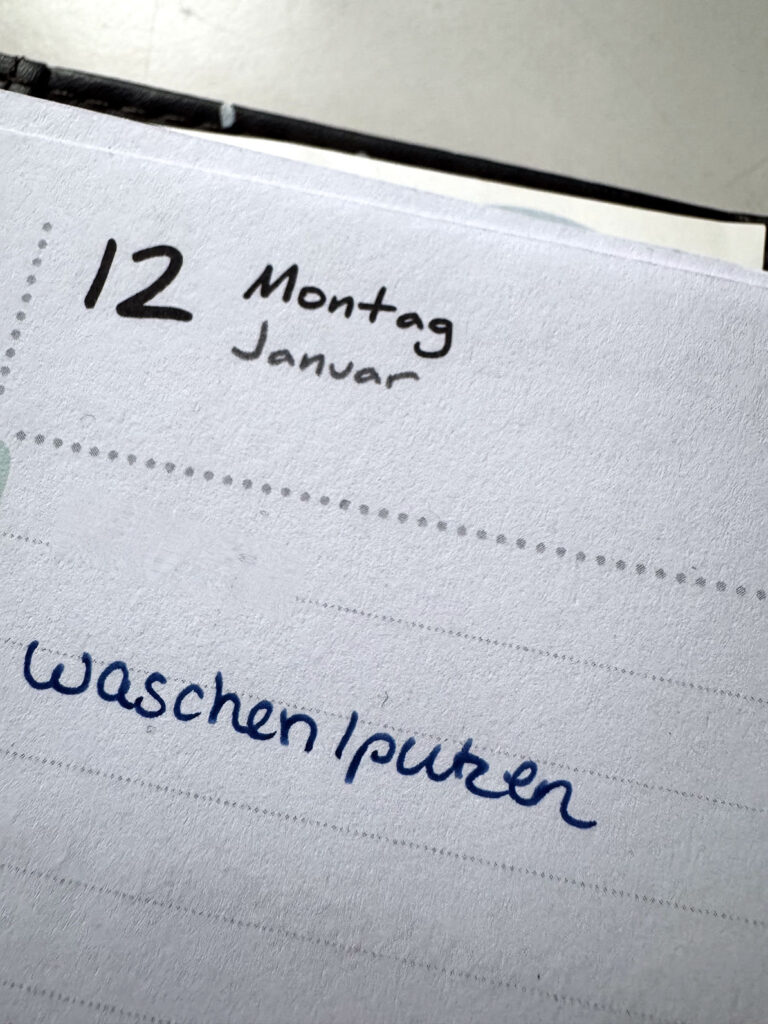 12 Montag
Januar
waschen/putzen